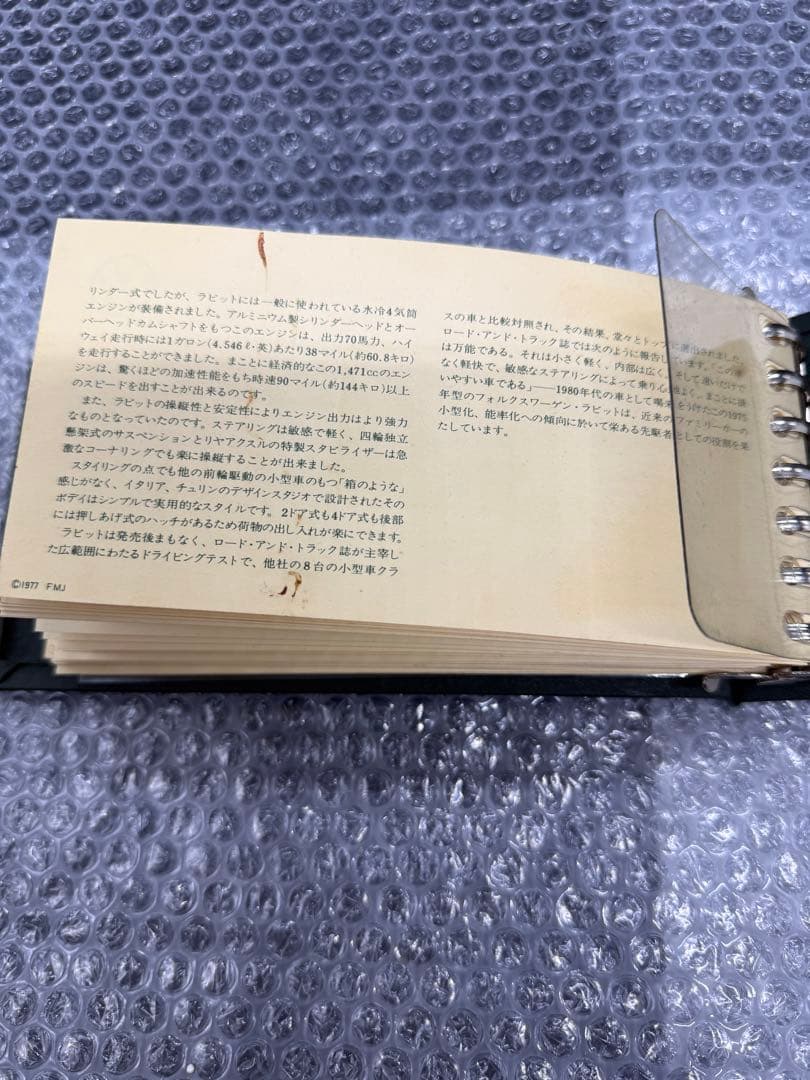 リンダー式でしたが、ラビットには一般に使われている水冷4気筒
エンジンが装備されました。アルミニウム製シリンダーヘッドとオー
バーヘッドカムシャフトをもつこのエンジンは、出力70馬力、ハイ
ウェイ走行時には1ガロン(4.546ℓ・英)あたり38マイル(約60.8キロ)
を走行することができました。まことに経済的なこの1,471ccのエン
ジンは、驚くほどの加速性能をもち時速90マイル(約144キロ)以上
のスピードを出すことが出来るのです。
また、ラビットの操縦性と安定性によりエンジン出力はより強力
なものとなっていたのです。ステアリングは敏感で軽く、四輪独立
懸架式のサスペンションとリヤアクスルの特製スタビライザーは急
激なコーナリングでも楽に操縦することが出来ました。
スタイリングの点でも他の前輪駆動の小型車のもつ「箱のような」
感じがなく、イタリア、チュリンのデザインスタジオで設計されたその
ボディはシンプルで実用的なスタイルです。2ドア式も4ドア式も後部
には押しあげ式のハッチがあるため荷物の出し入れが楽にできます。
ラビットは発売後まもなく、ロード・アンド・トラック誌が主宰し
た広範囲にわたるドライビングテストで、他社の8台の小型車クラ
スの車と比較対照され、その結果、堂々とトップに選出されました。
ロード・アンド・トラック誌では次のように報告しています。「この車
は万能である。それは小さく軽く、内部は広く、そして速いだけで
なく軽快で、敏感なステアリングによって乗り心地よく、まことに扱
いやすい車である」——1980年代の車として喝采をうけたこの1975
年型のフォルクスワーゲン・ラビットは、近来のファミリーカーの
小型化、能率化への傾向に於いて栄ある先駆者としての役割を果
たしています。
©1977 FMJ